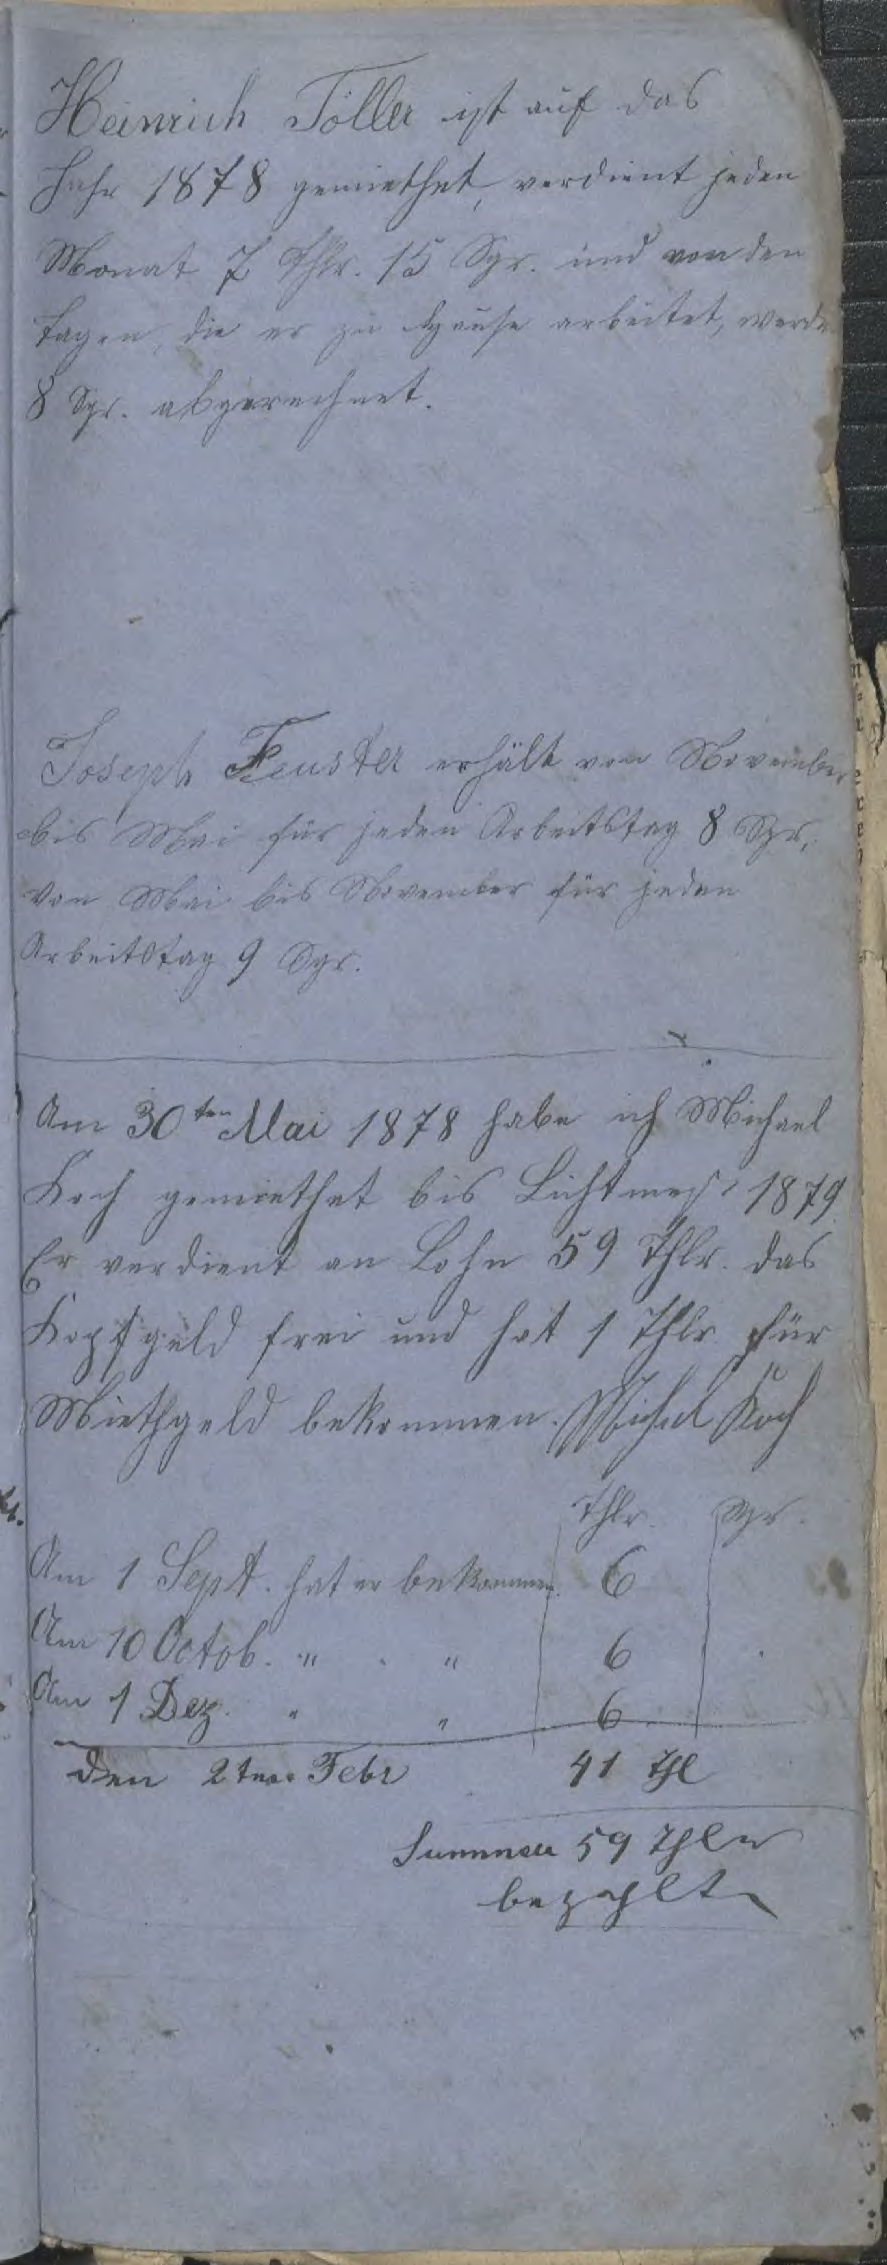 Heinrich Töller ist auf das
Jahr 1878 gemiethet, verdient jeden
Monat 7 Thlr. 15 Sgr. und von den
Tagen, die er zu Hause arbeitet, werde
8 Sgr. abgerechnet.
Joseph Feuster erhält von November
bis Mai für jeden Arbeitstag 8 Sgr.,
von Mai bis November für jeden
Arbeitstag 9 Sgr.
Am 30ten Mai 1878 habe ich Michael
Koch gemiethet bis Lichtmeß 1879
Er verdient an Lohn 59 Thlr. das
Kopfgeld frei und hat 1 Thlr. für
Miethgeld bekommen. Michel Koch
Thlr. Sgr.
Am 1 Sept. hat er bekommen. 6
Am 10 Octob. " " 6
Am 1 Dez. " " 6
den 2ten Febr 41 Thl
Summa 59 Thler
bezahlt